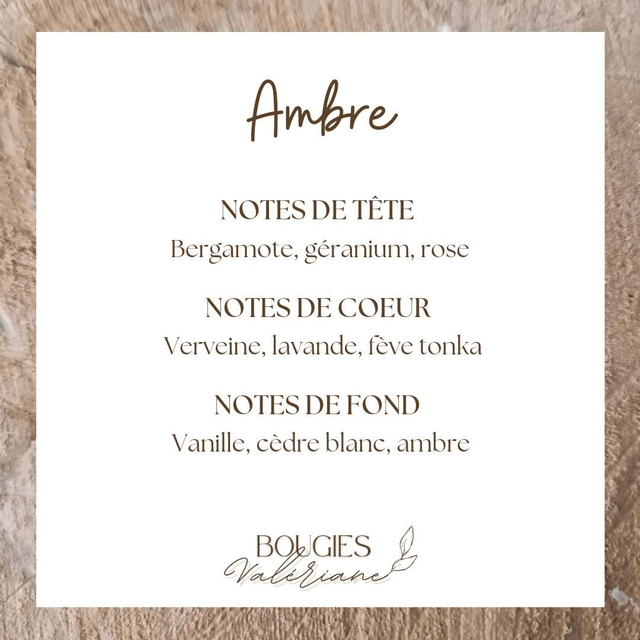 Ambre
NOTES DE TÊTE
Bergamote, géranium, rose
NOTES DE COEUR
Verveine, lavande, fève tonka
NOTES DE FOND
Vanille, cèdre blanc, ambre
BOUGIES
Valériane